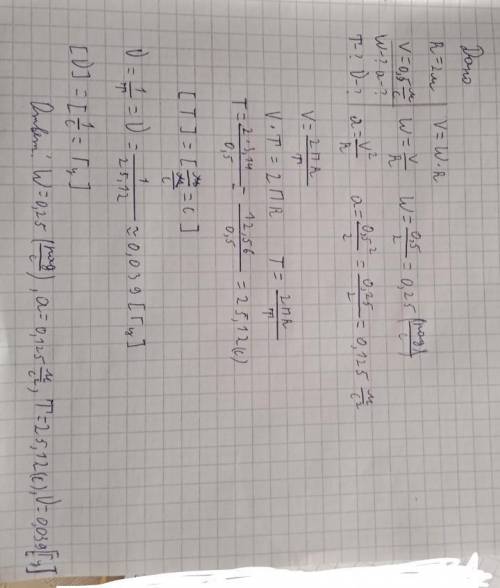 Дано
R=2м
V=0,5 м/с
W-? a-?
T-? ν-?
V=W·R
W=V/R W=0,5/2=0,25 (рад/с)
a=V²/R a=0,5²/2=0,25/2=0,125 м/с²
V=2ПR/T
V·T=2ПR T=2ПR/T
T=2·3,14/0,5=12,56/0,5=25,12(с)
[T]=[м/м/с=с]
ν=1/T=ν=1/25,12≈0,039[Гц]
[ν]=[1/с=Гц]
Ответ: W=0,25 (рад/с), a=0,125 м/с², T=25,12(с), ν=0,039[Гц]